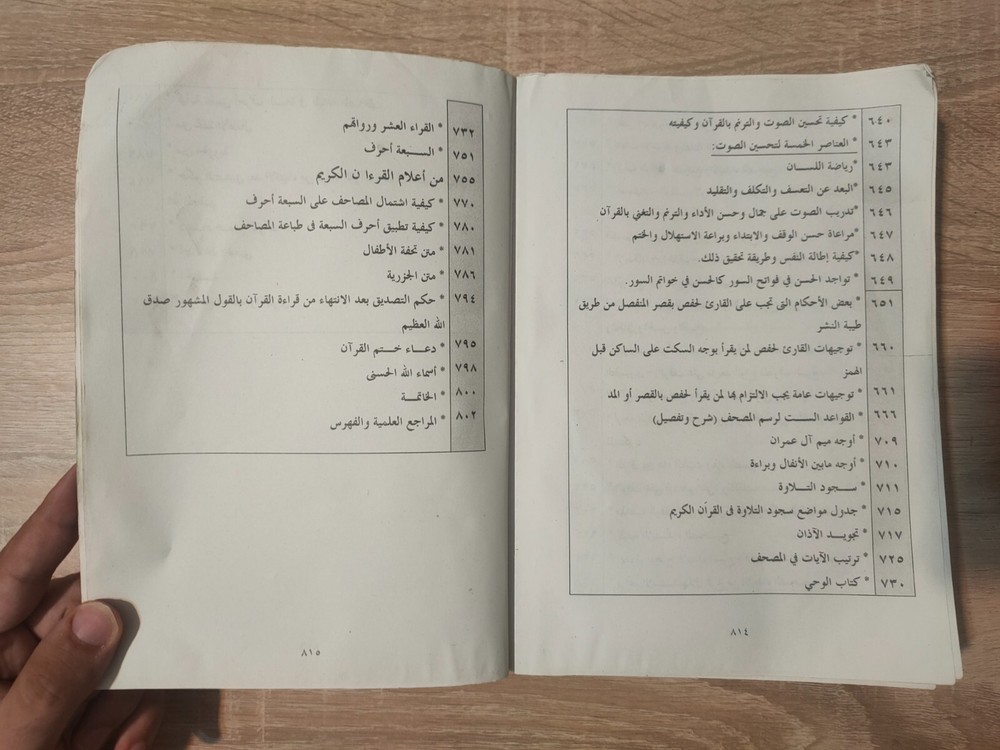 ٦٤٠ * كيفية تحسين الصوت والترنم بالقرآن وكيفيته
٦٤٣ * العناصر الخمسة لتحسين الصوت:
٦٤٣ *رياضة اللســـان
٦٤٥ *البعد عن التعسف والتكلف والتقليد
٦٤٦ *تدريب الصوت على جمال وحسن الأداء والترنم والتغني بالقرآن
٦٤٧ *مراعاة حسن الوقف والابتداء وبراعة الاستهلال والختم
٦٤٨ *كيفية إطالة النفس وطريقة تحقيق ذلك.
٦٤٩ * تواجد الحسن في فواتح السور كالحسن في خواتم السور.
٦٥١ * بعض الأحكام التى تجب على القارئ لحفص بقصر المنفصل من طريق
طيبة النشر
٦٦٠ * توجيهات القارئ لحفص لمن يقرأ بوجه السكت على الساكن قبل
الهمز
٦٦١ * توجيهات عامة يجب الالتزام بها لمن يقرأ لحفص بالقصر أو المد
٦٦٦ * القواعد الســت لرسم المصحف (شرح وتفصيل)
٧٠٩ * أوجه ميم آل عمران
٧١٠ * أوجه مابين الأنفال وبراءة
٧١١ * سـجود التـــلاوة
٧١٥ * جدول مواضع سجود التلاوة فى القرآن الكريم
٧١٧ * تجويـــد الآذان
٧٢٥ * ترتيب الآيات في المصحف
٧٣٠ * كتاب الوحي
٨١٤
٧٣٢ * القراء العشر ورواتهم
٧٥١ * الســبعة أحرف
٧٥٥ من أعلام القرءا ن الكريم
٧٧٠ * كيفية اشتمال المصاحف على السبعة أحرف
٧٨٠ * كيفية تطبيق أحرف السبعة فى طباعة المصاحف
٧٨١ * متن تحفة الأطفال
٧٨٦ * متن الجزرية
٧٩٤ * حكم التصديق بعد الانتهاء من قراءة القرآن بالقول المشهور صدق
الله العظيم
٧٩٥ * دعـاء خـــتم القرآن
٧٩٨ * أسماء الله الحسنى
٨٠٠ * الخاتمـــة
٨٠٢ * المراجع العلمية والفهرس
٨١٥